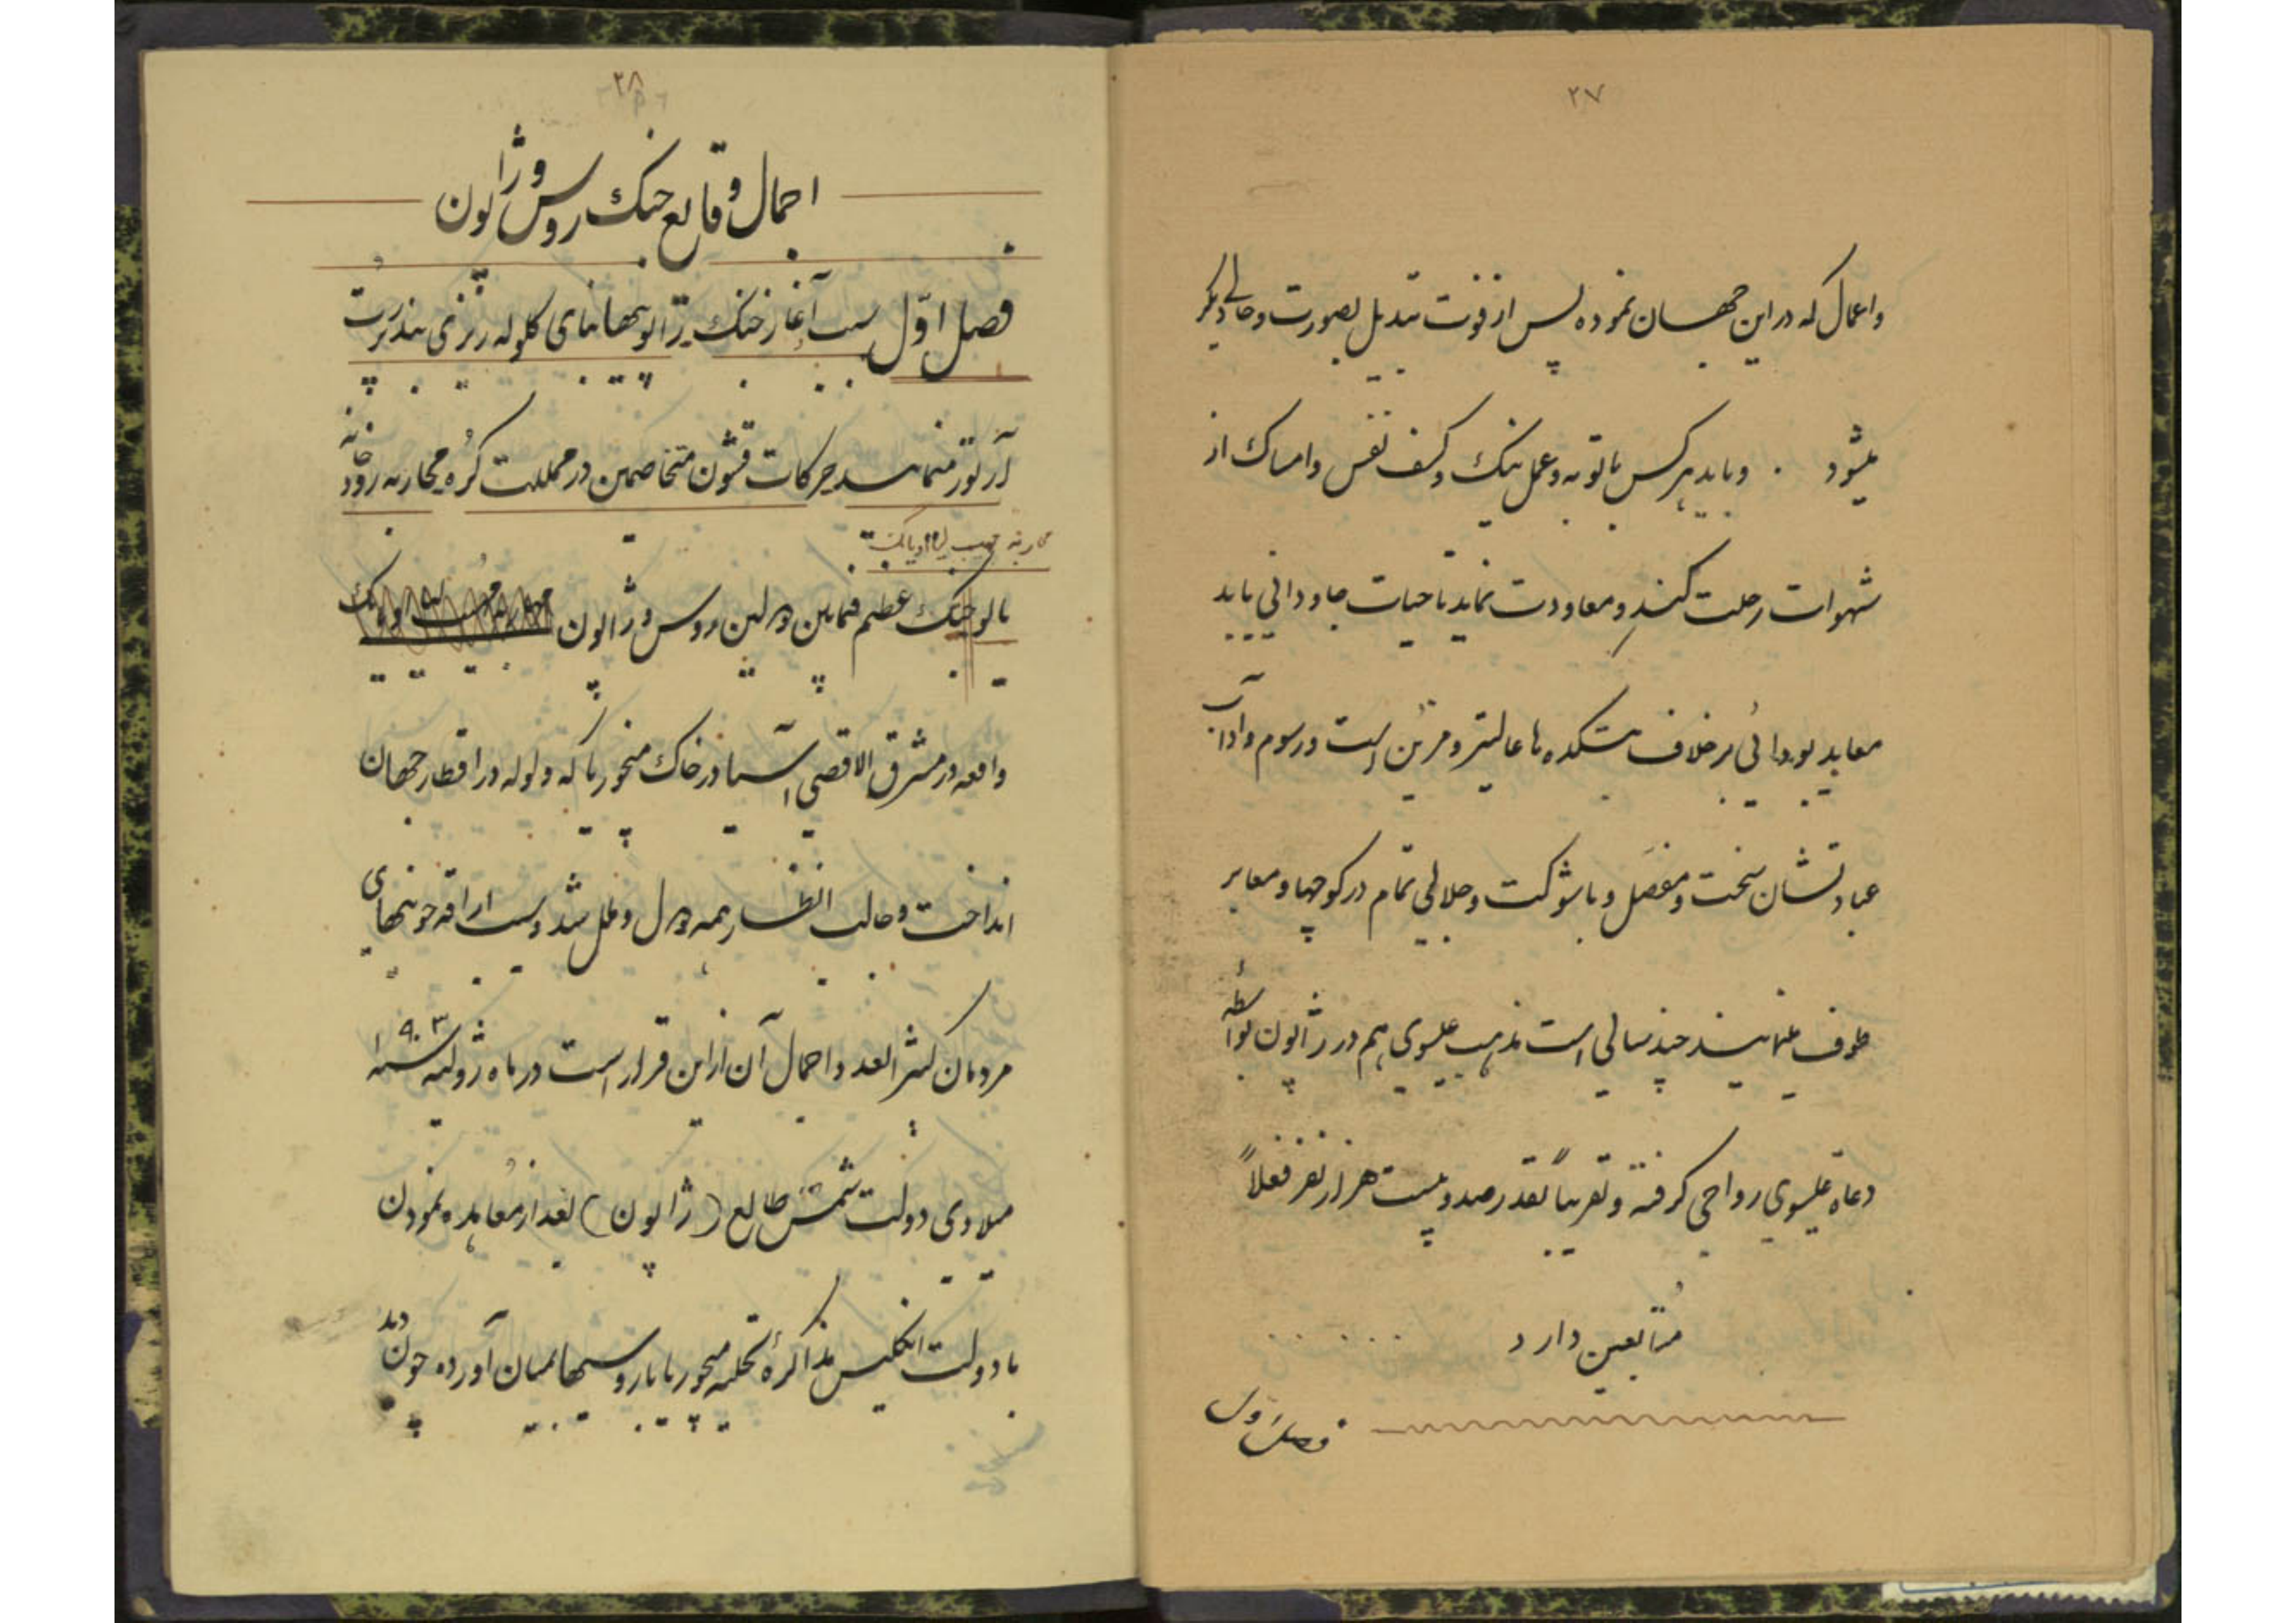 ۲۷
واعمال که در این جهان نموده پس از فوت تبدیل بصورت و حالی دیگر
میشود . و باید هر کس با توبه و عمل نیک و کف نفس و امساک از
شهوات رحلت کند و معاودت نماید تا حیات جاودانی یابد
معابد بودائی بر خلاف بتکده ها عالیتر و مزین است و رسوم و آداب
عبادتشان سخت و مفصل و با شوکت و جلالی تمام در کوچها و معابر
طوف مینمایند چند سالی است مذهب عیسوی هم در ژاپون بواسطه
دعاه عیسوی رواجی گرفته و تقریباً بقدر صد و بیست هزار نفر فعلاً
متابعین دارد
فصل اول
۲۸
اجمال وقایع جنک روس و ژاپون
فصل اوّل سبب آغاز جنک ژاپونیها بنای کلوله ریزی ببندر پُرت
آرتور مینمایند حرکات قشون متخاصمین در مملکت کُره محاربه رودخانه
محاربه مهیب لیااویانک
یالو جنک عظیم فیمابین دولتین روس و ژاپون
واقعه در مشرق الاقصی آسیا در خاک منچوریا که ولوله در اقطار جهان
انداخت و جالب انظار همه دول و ملل شد و سبب اراقه خونهای
مردمان کثیر العدد و اجمال آن از این قرار است در ماه ژولیه سنه ۱۹۰۳
میلادی دولت شمس طالع (ژاپون) بعد از معاهده نمودن
با دولت انکلیس مذاکرهٔ تخلیه منچوریا با روسیها بمیان آورده چون دید